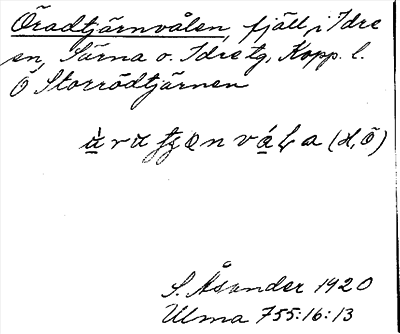 Öradtjärnvålen, fjäll i Idre
sn, Särna o. Idre tg, Kopp. l.
Ö Storrödtjärnen
S. Åsander 1920
Ulma 755:16:13